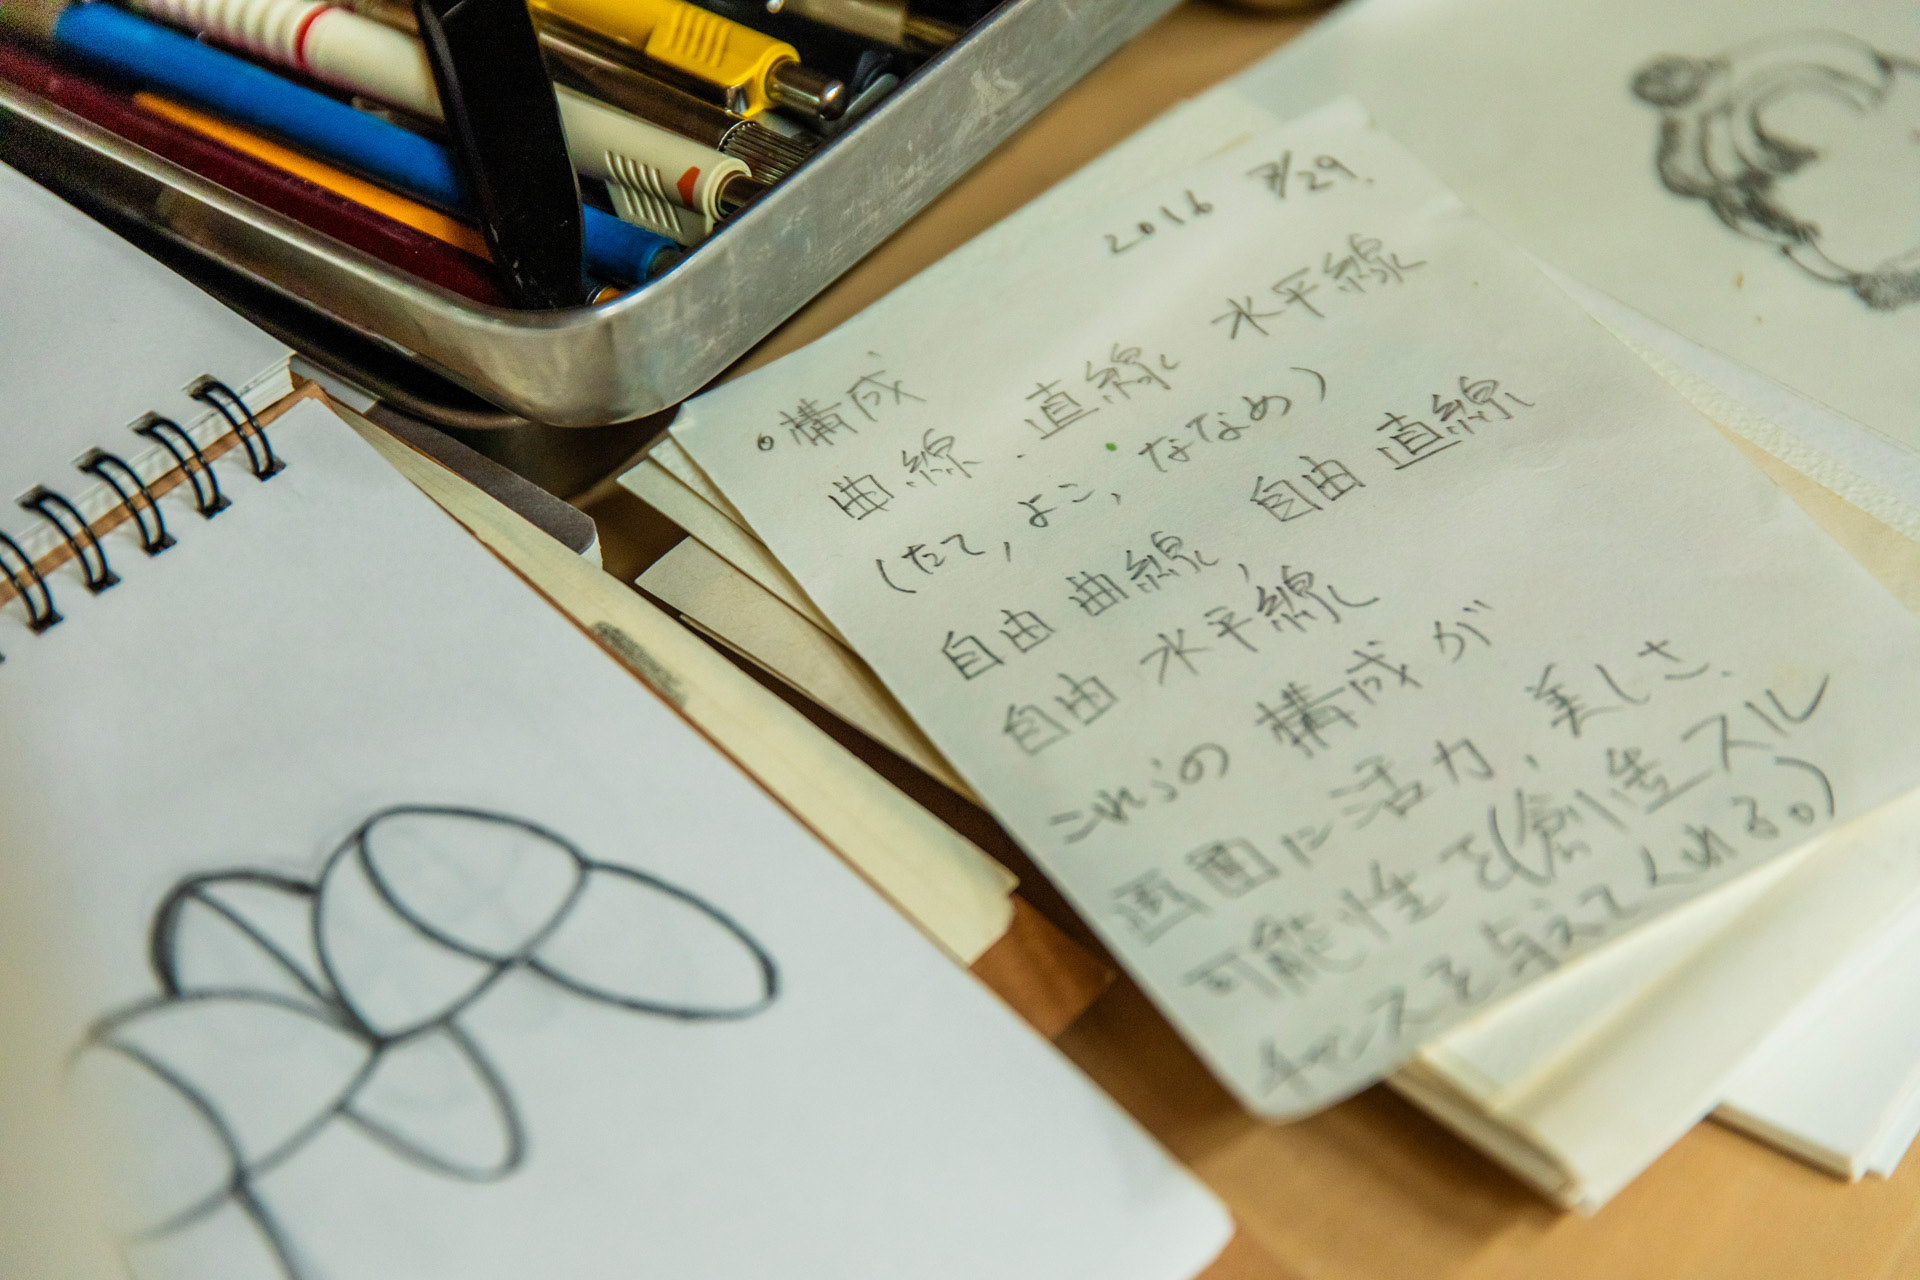 2016 7/29.
・構成
曲線.直線 水平線
(たて,よこ,ななめ)
自由曲線,自由直線
自由水平線
これらの構成が
画面に活力,美しさ.
可能性を(創造スル
チャンスを与えてくれる。)